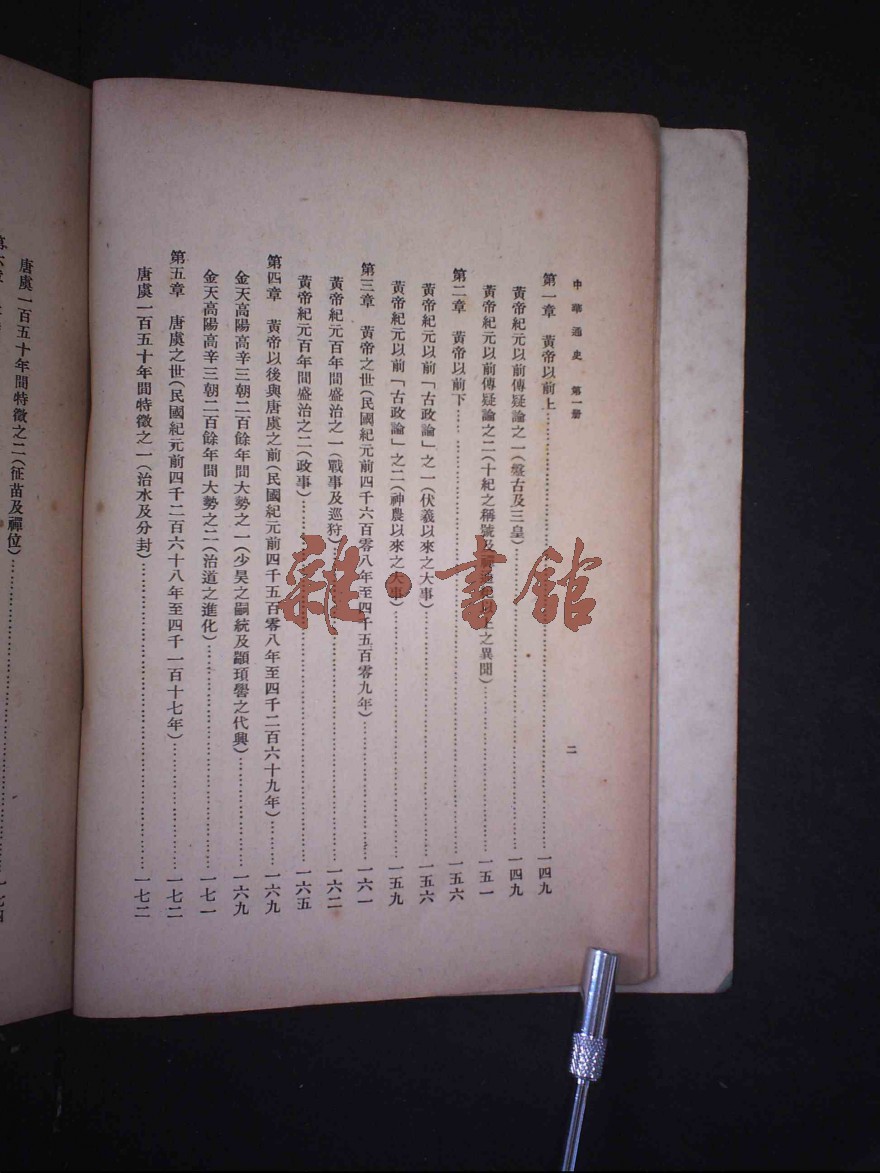 中華通史 第一册
二
第一章 黃帝以前上……一四九
黃帝紀元以前傳疑論之一(盤古及三皇)……一四九
黃帝紀元以前傳疑論之二(十紀之稱號及 之異聞)……一五一
第二章 黃帝以前下……一五六
黃帝紀元以前「古政論」之一(伏羲以來之大事)……一五六
黃帝紀元以前「古政論」之二(神農以來之大事)……一五九
第三章 黃帝之世(民國紀元前四千六百零八年至四千五百零九年)……一六一
黃帝紀元百年間盛治之一(戰事及巡狩)……一六二
黃帝紀元百年間盛治之二(政事)……一六五
第四章 黃帝以後與唐虞之前(民國紀元前四千五百零八年至四千二百六十九年)……一六九
金天高陽高辛三朝二百餘年間大勢之一(少昊之嗣統及顓頊嚳之代興)……一六九
金天高陽高辛三朝二百餘年間大勢之二(治道之進化)……一七一
第五章 唐虞之世(民國紀元前四千二百六十八年至四千一百十七年)……一七二
唐虞一百五十年間特徵之一(治水及分封)……一七二
唐虞一百五十年間特徵之二(征苗及禪位)……一七四
第六章
雜·書館